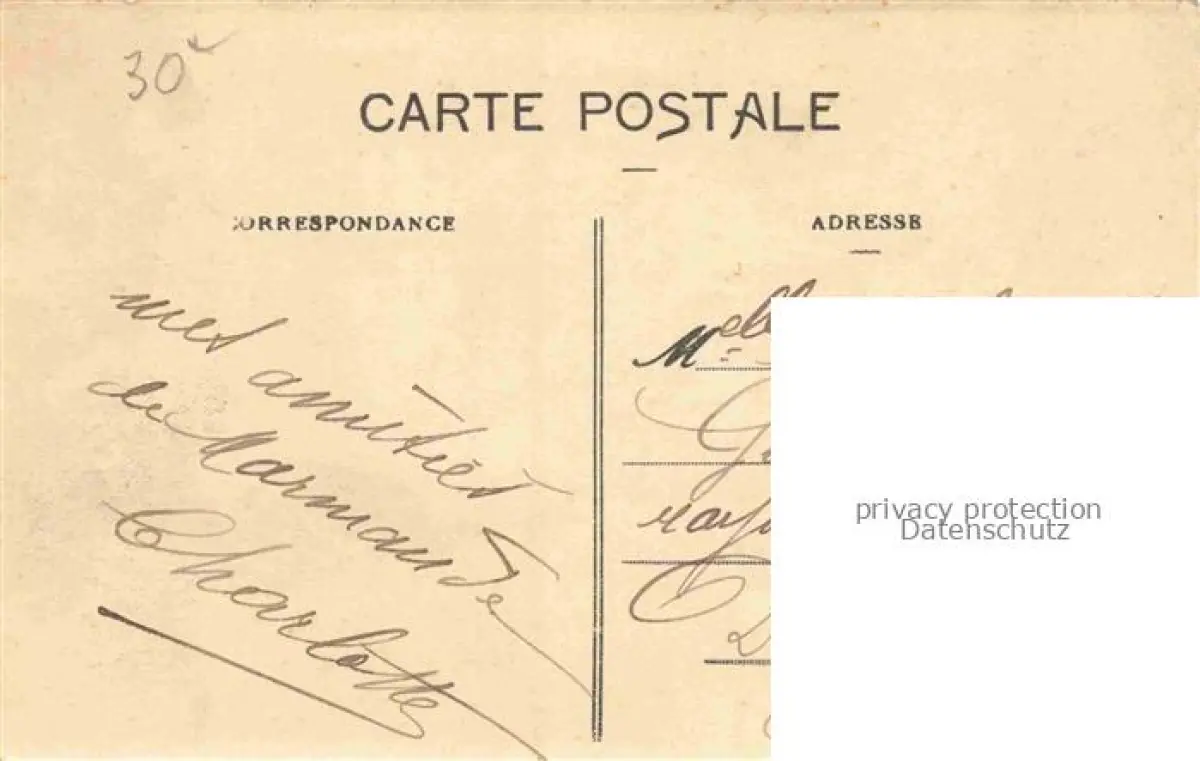 30
CARTE POSTALE
CORRESPONDANCE
ADRESSE
mes amitiés
de Marmande
Charlotte
Melle
privacy protection
Datenschutz